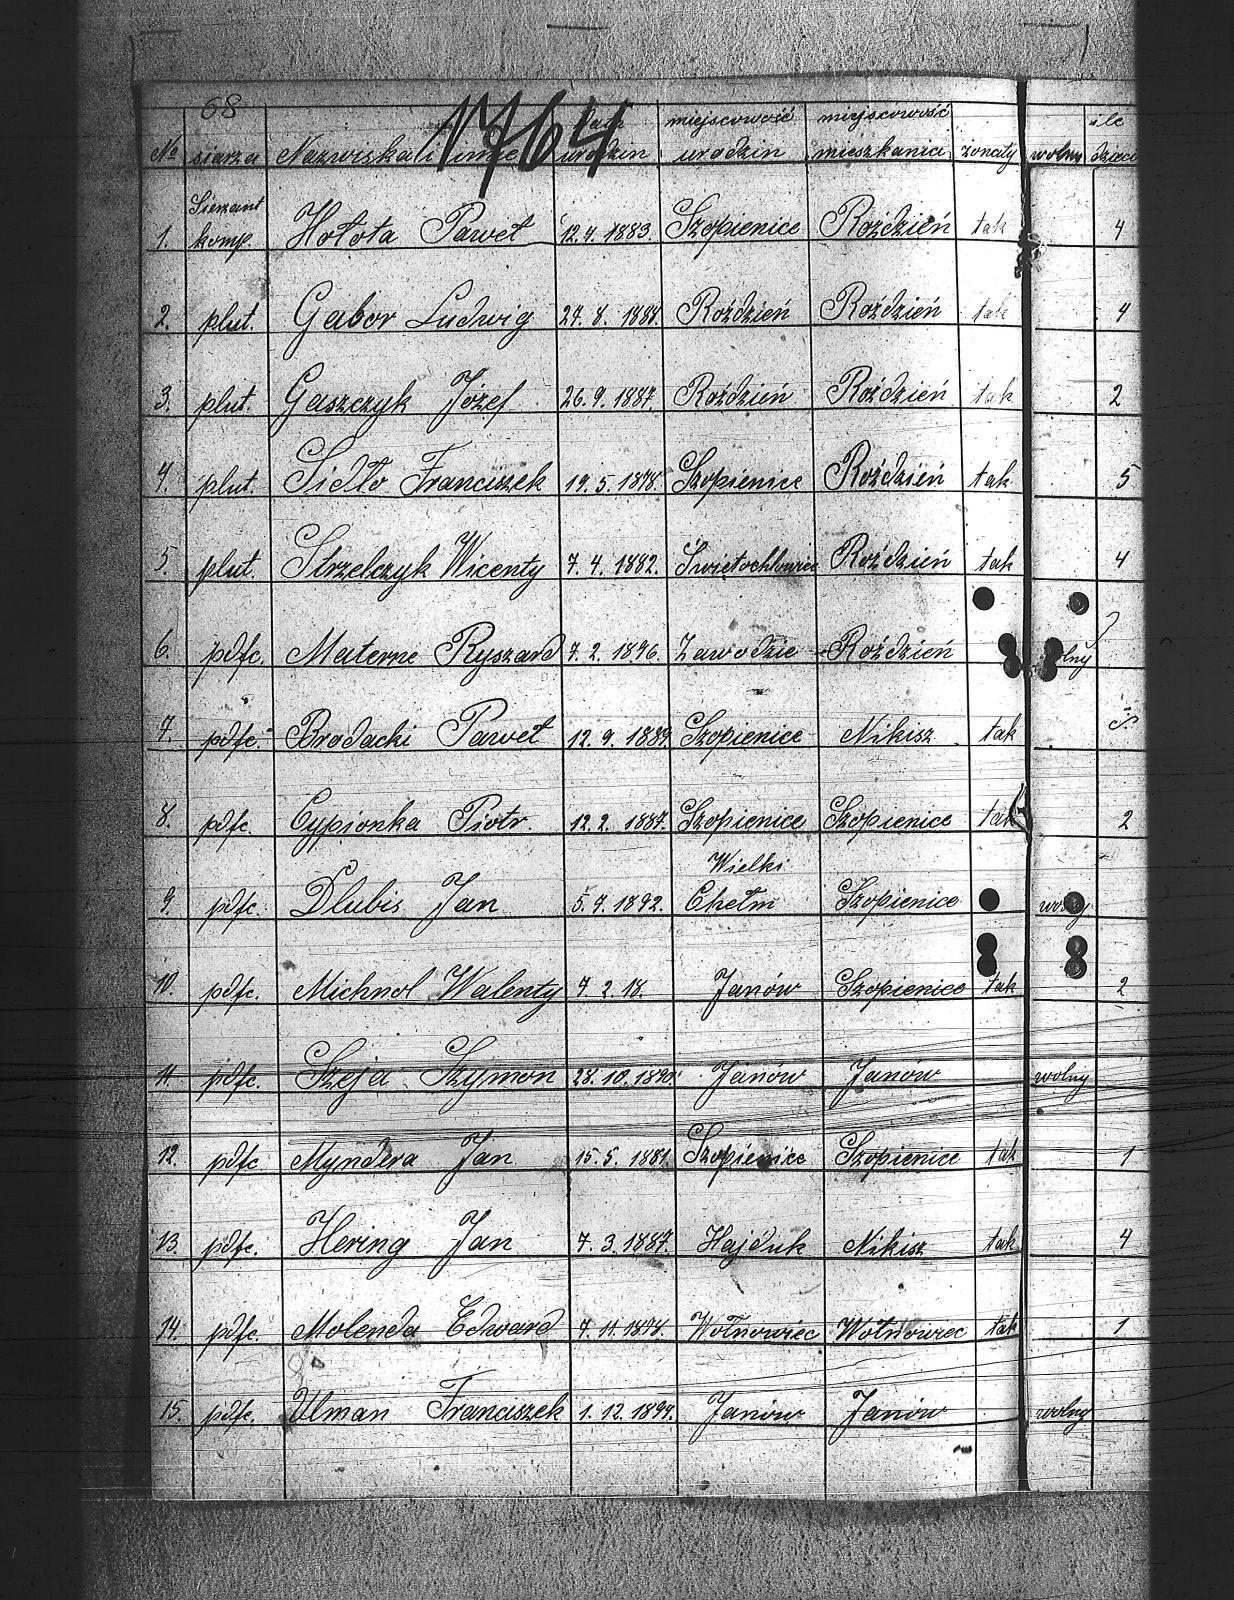 68
1764
№ siarża Nazwiska i imię urodzin miejscowość urodzin miejscowość mieszkania żonaty wolny ile dzieci
1. Sierżant komp. Hołota Paweł 12.4.1883. Szopienice Roździeń tak 4
2. plut. Gabor Ludwig Roździeń Roździeń tak 4
3. plut. Gaszczyk Józef 26.9.1887. Roździeń Roździeń tak 2
4. plut. Sidło Franciszek 19.5.1878. Szopienice Roździeń tak 5
5. plut. Strzelczyk Wicenty 7.4.1882. Świętochłowiec Roździeń tak 4
6. pdfc. Materne Ryszard 7.2.1896. Zawodzie Roździeń
7. pdfc. Brodacki Paweł 12.9.1889. Szopienice Nikisz tak
8. pdfc. Cypionka Piotr. 12.2.1887. Szopienice Szopienice tak 2
9. pdfc. Dlubis Jan 5.7.1892. Wielki Chełm Szopienice wolny
10. pdfc. Michnol Walenty 7.2.18. Janów Szopienice tak 2
11. pdfc. Szeja Szymon 28.10.1890. Janów Janów wolny
12. pdfc Myndera Jan 15.5.1881. Szopienice Szopienice tak 1
13. pdfc. Hering Jan 7.3.1887. Hajduk Nikisz tak 4
14. pdfc. Molenda Edward 7.11.1878. Wołnowiec Wołnowiec tak 1
15. pdfc. Ulman Franciszek 1.12.1897. Janów Janów wolny